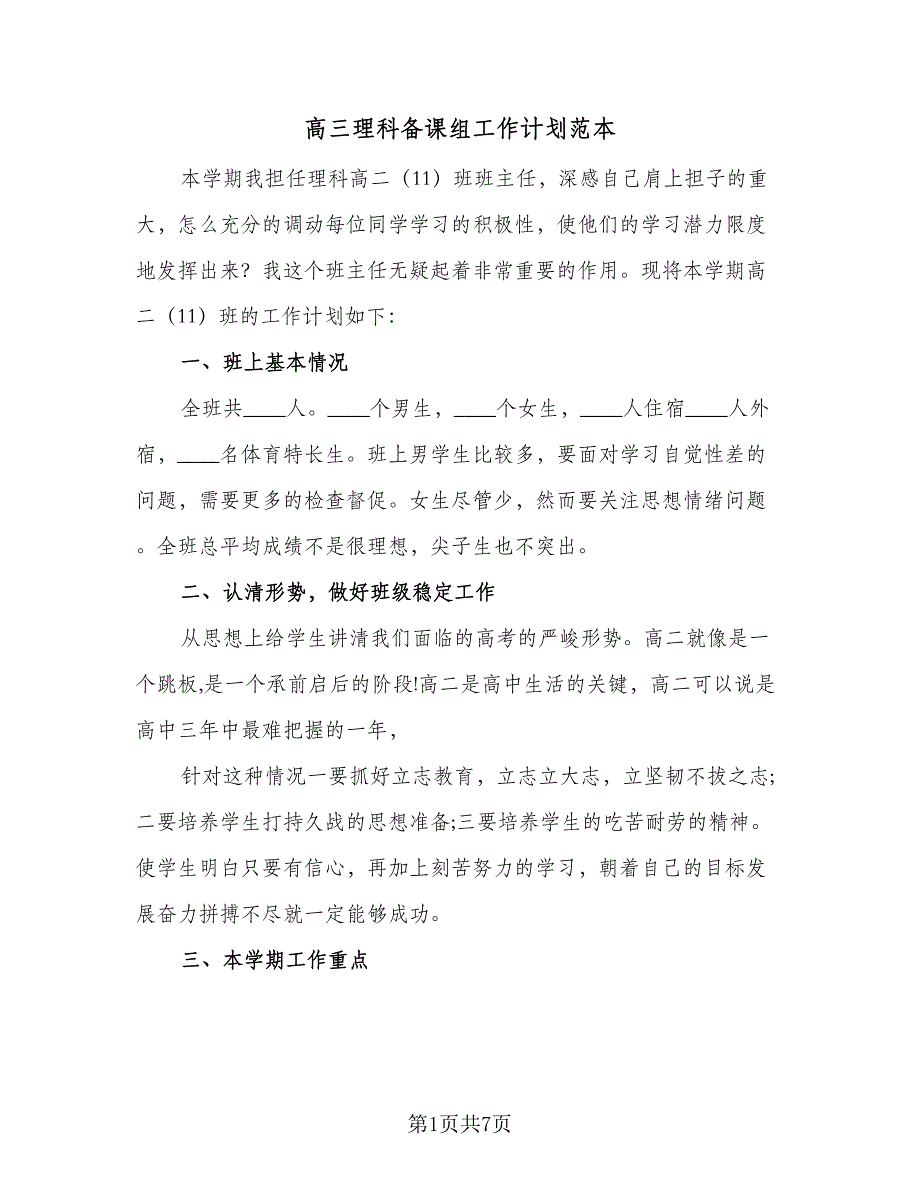 高三理科备课组工作计划范本
本学期我担任理科高二（11）班班主任，深感自己肩上担子的重
大，怎么充分的调动每位同学学习的积极性，使他们的学习潜力限度
地发挥出来？我这个班主任无疑起着非常重要的作用。现将本学期高
二（11）班的工作计划如下：
一、班上基本情况
全班共____人。____个男生，____个女生，____人住宿____人外
宿，____名体育特长生。班上男学生比较多，要面对学习自觉性差的
问题，需要更多的检查督促。女生尽管少，然而要关注思想情绪问题
。全班总平均成绩不是很理想，尖子生也不突出。
二、认清形势，做好班级稳定工作
从思想上给学生讲清我们面临的高考的严峻形势。高二就像是一
个跳板,是一个承前启后的阶段!高二是高中生活的关键，高二可以说是
高中三年中最难把握的一年，
针对这种情况一要抓好立志教育，立志立大志，立坚韧不拔之志;
二要培养学生打持久战的思想准备;三要培养学生的吃苦耐劳的精神。
使学生明白只要有信心，再加上刻苦努力的学习，朝着自己的目标发
展奋力拼搏不尽就一定能够成功。
三、本学期工作重点
第1页共7页